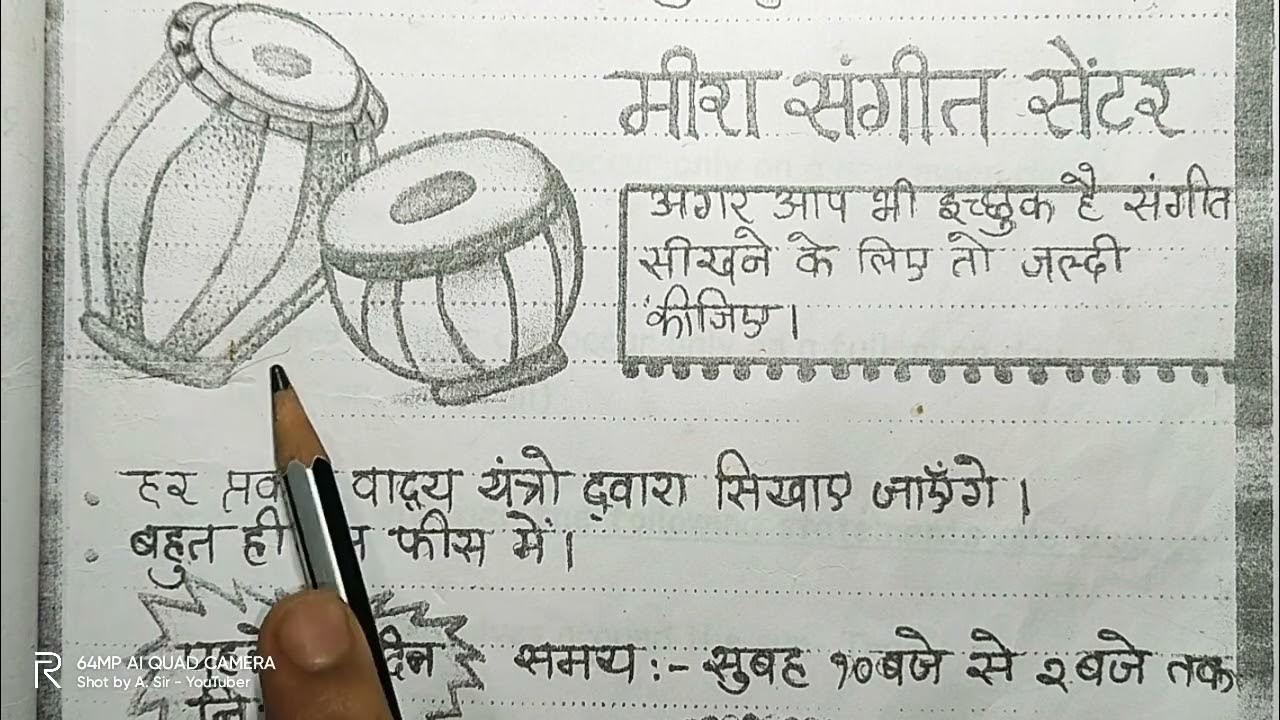 मीरा संगीत सेंटर
अगर आप भी इच्छुक है संगीत
सीखने के लिए तो जल्दी
कीजिए।
हर वाद्य यंत्रो द्वारा सिखाए जाएँगे।
बहुत ही फीस में।
दिन
समय :- सुबह १० बजे से २ बजे तक
64MP AI QUAD CAMERA
Shot by A. Sir - YouTuber